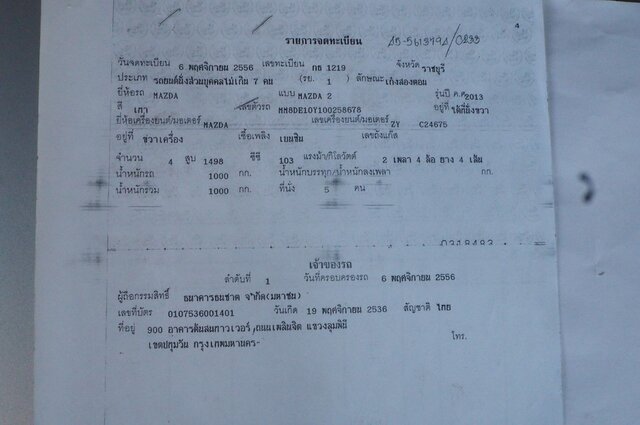 4
รายการจดทะเบียน
วันจดทะเบียน 6 พฤศจิกายน 2556 เลขทะเบียน กธ 1219 จังหวัด ราชบุรี
ประเภท รถยนต์นั่งส่วนบุคคลไม่เกิน 7 คน (รย. 1 ) ลักษณะ เก๋งสองตอน
ยี่ห้อรถ MAZDA แบบ MAZDA 2 รุ่นปี ค.ศ 2013
สี เทา เลขตัวรถ MM8DE10Y100258678 อยู่ที่ ใต้ที่นั่งขวา
ยี่ห้อเครื่องยนต์/มอเตอร์ MAZDA เลขเครื่องยนต์/มอเตอร์ ZY C24675
อยู่ที่ ขวาเครื่อง เชื้อเพลิง เบนซิน เลขถังแก๊ส
จำนวน 4 สูบ 1498 ซีซี 103 แรงม้า/กิโลวัตต์ 2 เพลา 4 ล้อ ยาง 4 เส้น
น้ำหนักรถ 1000 กก. น้ำหนักบรรทุก/น้ำหนักลงเพลา กก.
น้ำหนักรวม 1000 กก. ที่นั่ง 5 คน
เจ้าของรถ
ลำดับที่ 1 วันที่ครอบครองรถ 6 พฤศจิกายน 2556
ผู้ถือกรรมสิทธิ์ ธนาคารธนชาต จำกัด(มหาชน)
เลขที่บัตร 0107536001401 วันเกิด 19 พฤศจิกายน 2536 สัญชาติ ไทย
ที่อยู่ 900 อาคารต้นสนทาวเวอร์,ถนนเพลินจิต แขวงลุมพินี
โทร.
เขตปทุมวัน กรุงเทพมหานคร